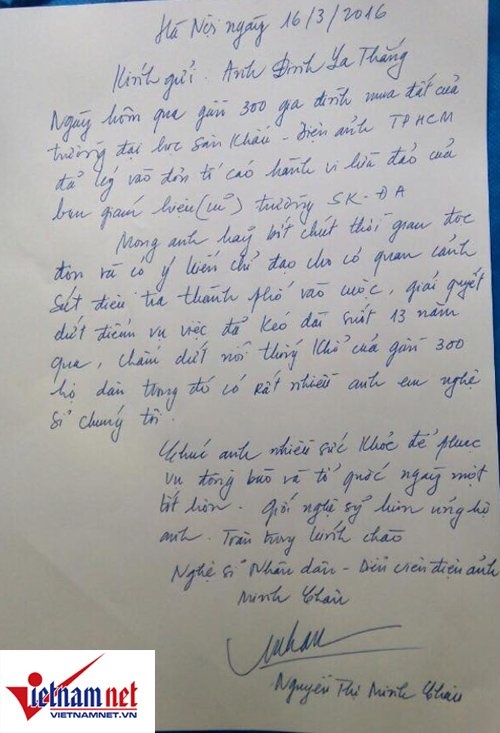 Hà Nội ngày 16/3/2016
Kính gửi. Anh Đinh La Thăng
Ngày hôm qua gần 300 gia đình mua đất của
trường đại học Sân Khấu - Điện ảnh TPHCM
đã ký vào đơn tố cáo hành vi lừa đảo của
ban giám hiệu (cũ) trường SK-ĐA
Mong anh hãy bớt chút thời gian đọc
đơn và có ý kiến chỉ đạo cho cơ quan cảnh
sát điều tra thành phố vào cuộc, giải quyết
dứt điểm vụ việc đã kéo dài suốt 13 năm
qua, chấm dứt nỗi thống khổ của gần 300
hộ dân trong đó có rất nhiều anh em nghệ
sĩ chúng tôi.
Chúc anh nhiều sức khỏe để phục
vụ đồng bào và tổ quốc ngày một
tốt hơn. Giới nghệ sỹ luôn ủng hộ
anh. Trân trọng kính chào
Nghệ sĩ Nhân dân - Diễn viên điện ảnh
Minh Châu
Nguyễn Thị Minh Châu
Vietnamnet
VIETNAMNET.VN